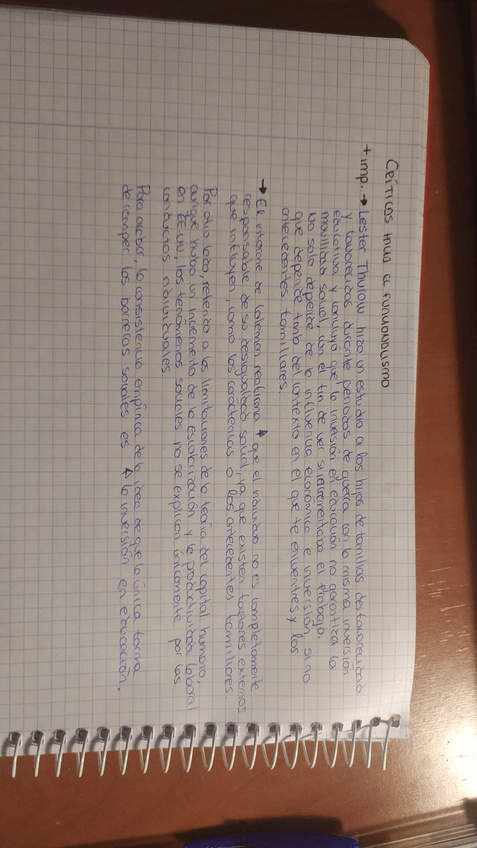 Críticas hacia el funcionalismo
+ imp. → Lester Thurow hizo un estudio a los hijos de familias desfavorecidas
y favorecidas durante periodos de guerra con la misma inversión
educativa y concluyó que la inversión en educación no garantiza la
movilidad social, con el fin de ver si aumentaba el trabajo.
No solo depende de la influencia económica e inversión, sino
que depende tanto del contexto en el que te encuentres y los
antecedentes familiares.
→ El informe de Coleman reafirma que el individuo no es completamente
responsable de su desigualdad social, ya que existen factores externos
que influyen, como las características o los antecedentes familiares.
Por otro lado, referido a las limitaciones de la teoría del capital humano,
aunque hubo un incremento de la escolarización y la productividad laboral
en EE.UU, los fenómenos sociales no se explican únicamente por las
conductas individuales.
Para acabar, la consistencia empírica de la idea de que la única forma
de romper las barreras sociales es la inversión en educación.